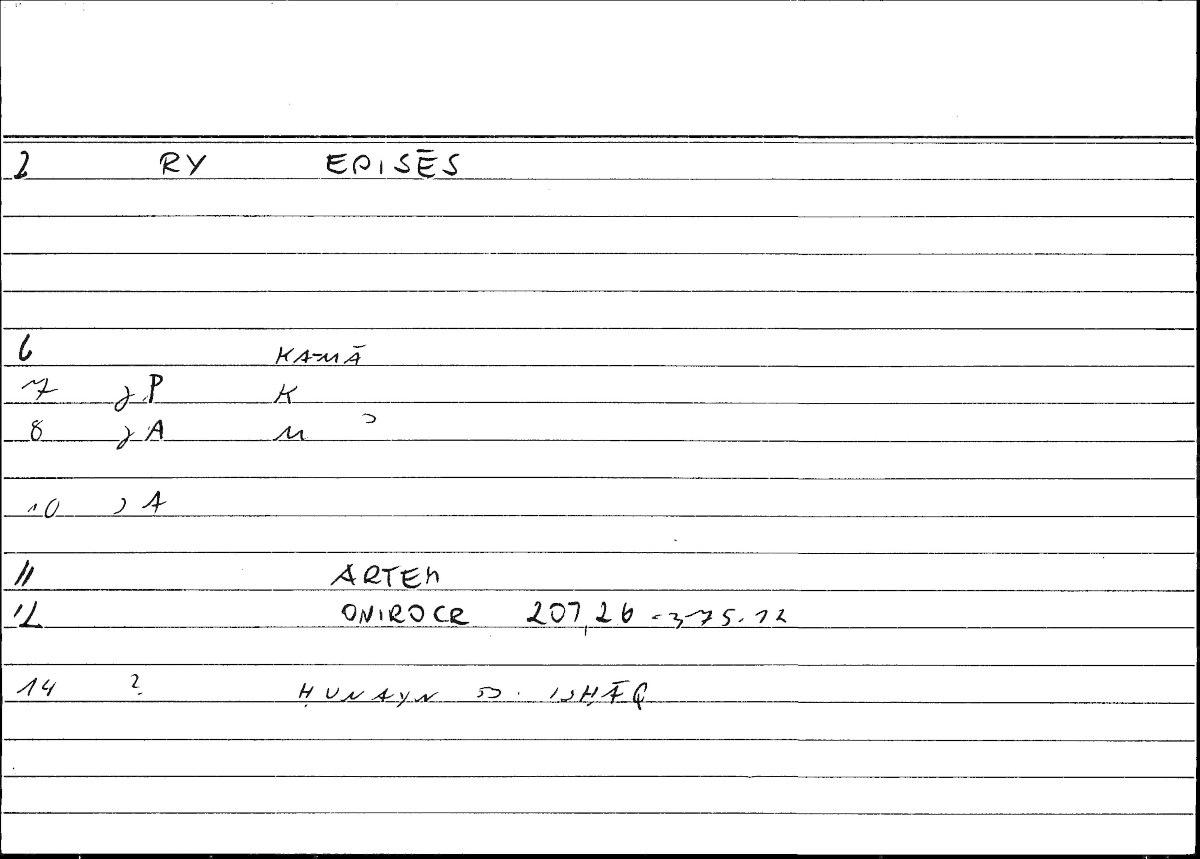 2 RY EPISĒS
6 KAMĀ
7 P K
8 A M
10 A
11 ARTEM
12 ONIROCR 207,26 - 375.12
14 ? ḤUNAYN B. ISḤĀQ